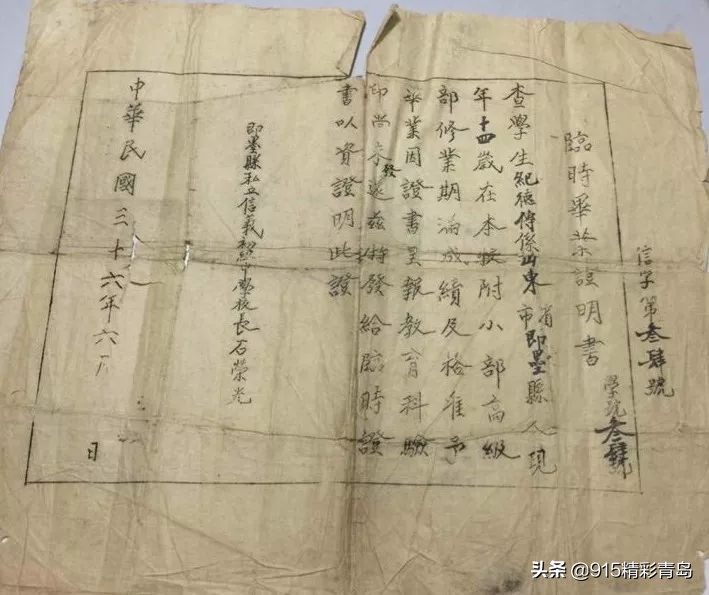 信字第叁肆號
學號叁肆號
臨時畢業證明書
查學生紀德傳係山東省市即墨縣人現
年十四歲在本校附小部高級
部修業期滿成績及格准予
畢業因證書呈報教育科驗
印尚未發還茲特發給臨時證
書以資證明此證
即墨縣私立信義初中學校長石榮
中華民國三十六年六月 日
头条 @915精彩青岛